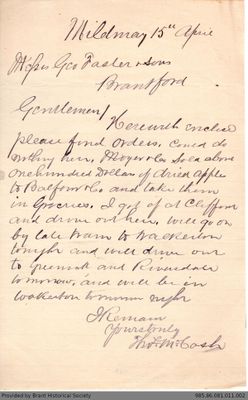 Mildmay 15th April
Messrs Geo Foster & Sons
Brantford
Gentlemen/
Herewith enclose
please find orders. Could do
nothing here. Moyer & Co sold above
one hundred Dollars of dried apples
to Balfour & Co and take them
in Groceries. I got of at Clifford
and drove out here. will go on
by late train to Walkerton
tonight and will drive out
to Greenock and Riversdale
tomorrow, and will be in
Walkerton tomorrow night
I Remain
Yours truly
Thos McCosh
Provided by Brant Historical Society
985.86.081.011.002